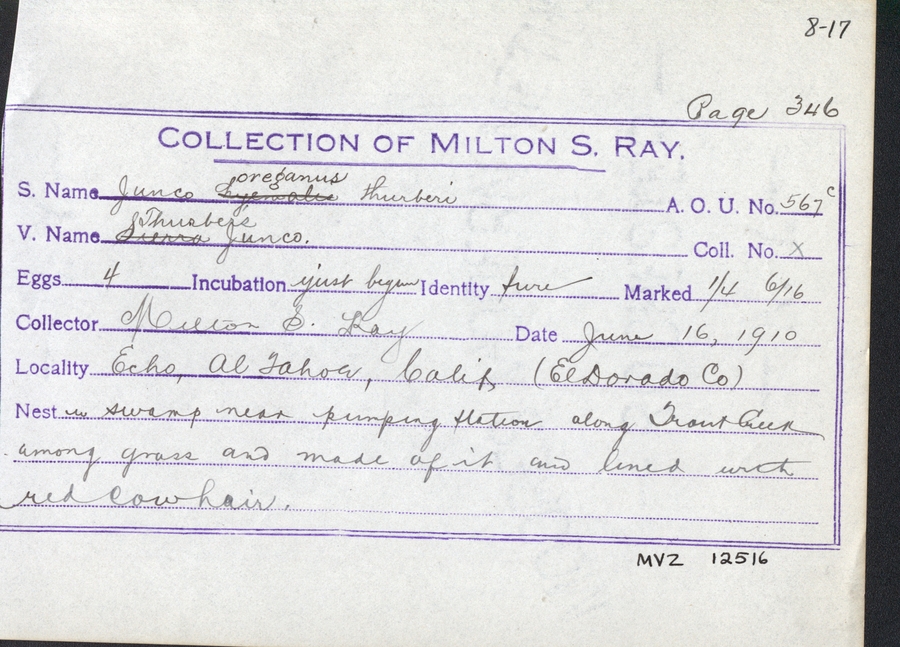 8-17
Page 346
COLLECTION OF MILTON S. RAY.
oreganus
S. Name Junco hyemalis thurberi A. O. U. No. 567c
Thurbers
V. Name Sierra Junco. Coll. No. X
Eggs 4 Incubation just begun Identity sure Marked 1/4 6/16
Collector Milton S. Ray Date June 16, 1910
Locality Echo, Al Tahoe, Calif, (El Dorado Co)
Nest in swamp near pumping station along Trout Creek
among grass and made of it and lined with
red cow hair.
MVZ 12516